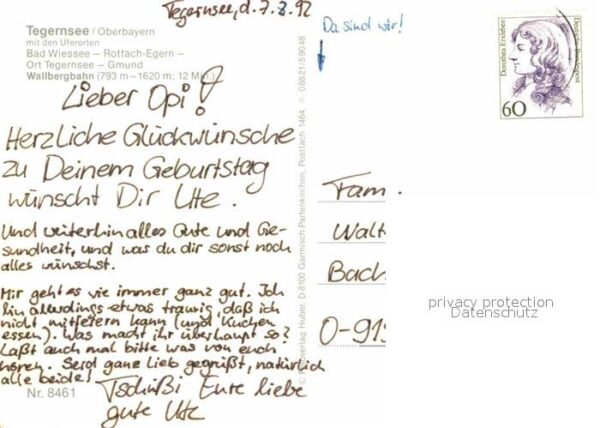 Tegernsee, d. 7.3.92
Tegernsee / Oberbayern
mit den Uferorten
Bad Wiessee – Rottach-Egern –
Ort Tegernsee – Gmund
Wallbergbahn (793 m – 1620 m; 12 Min.)
Lieber Opi!
Herzliche Glückwünsche
zu Deinem Geburtstag
wünscht Dir Ute.
Und weiterhin alles Gute und Ge-
sundheit, und was du dir sonst noch
alles wünschst.
Mir geht es wie immer ganz gut. Ich
bin allerdings etwas traurig, daß ich
nicht mitfeiern kann (und Kuchen
essen). Was macht ihr überhaupt so?
Laßt auch mal bitte was von euch
hören. Seid ganz lieb gegrüßt, natürlich
alle beide!
Tschüßi Eure liebe
gute Ute
Nr. 8461
Huber, D-8100 Garmisch-Partenkirchen, Postfach 1464, 08821/59048
Da sind wir!
Dorothea Erxleben
Deutsche Bundespost
60
Fam.
Walt
Bach
O-919
privacy protection
Datenschutz